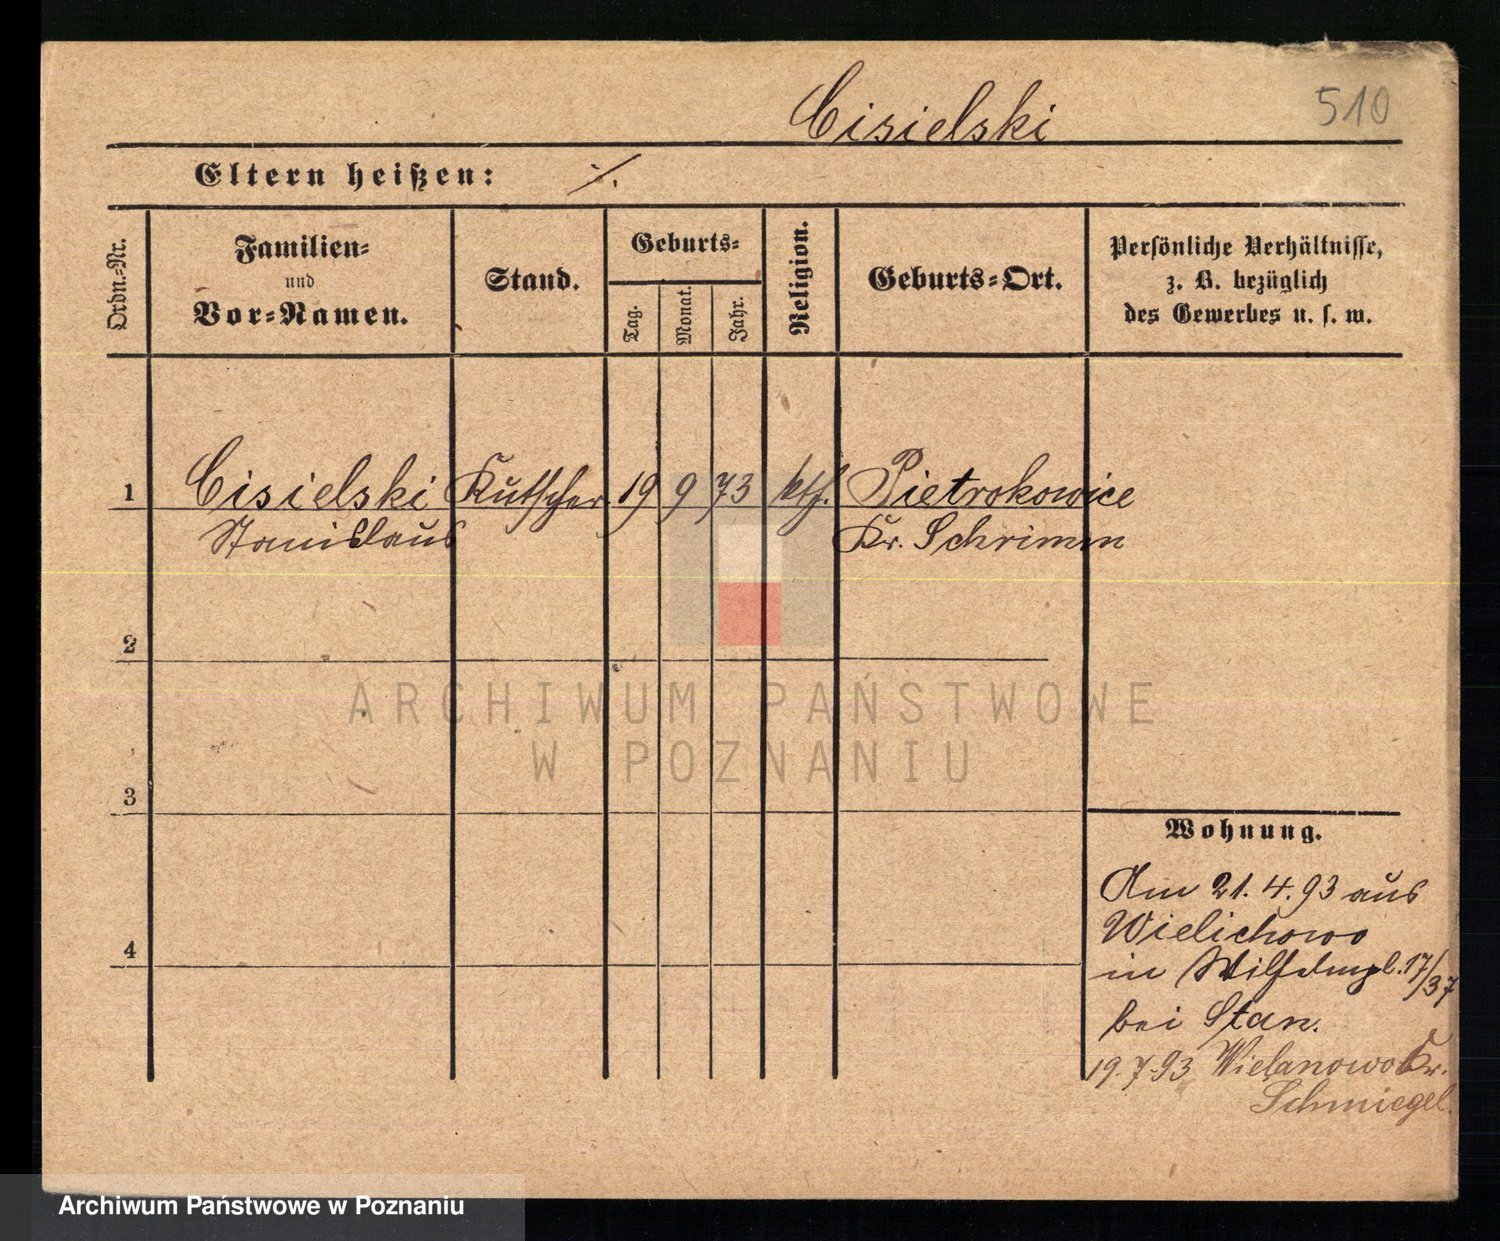 Cisielski 510
Eltern heißen: ./.
Ordn.-Nr.
Familien-
und
Vor-Namen.
Stand.
Geburts-
Tag.
Monat.
Jahr.
Religion.
Geburts-Ort.
Persönliche Verhältnisse,
z. B. bezüglich
des Gewerbes u. s. w.
1 Cisielski Kutscher 19 9 73 kth. Pietrokowice
Stanislaus Kr. Schrimm
2
3
4
Wohnung.
Am 21.4.93 aus
Wielichowo
in Wilhelmpl. 17/37
bei Stan.
19.7.93 Wielanowo Kr.
Schmiegel.
ARCHIWUM PAŃSTWOWE
W POZNANIU
Archiwum Państwowe w Poznaniu